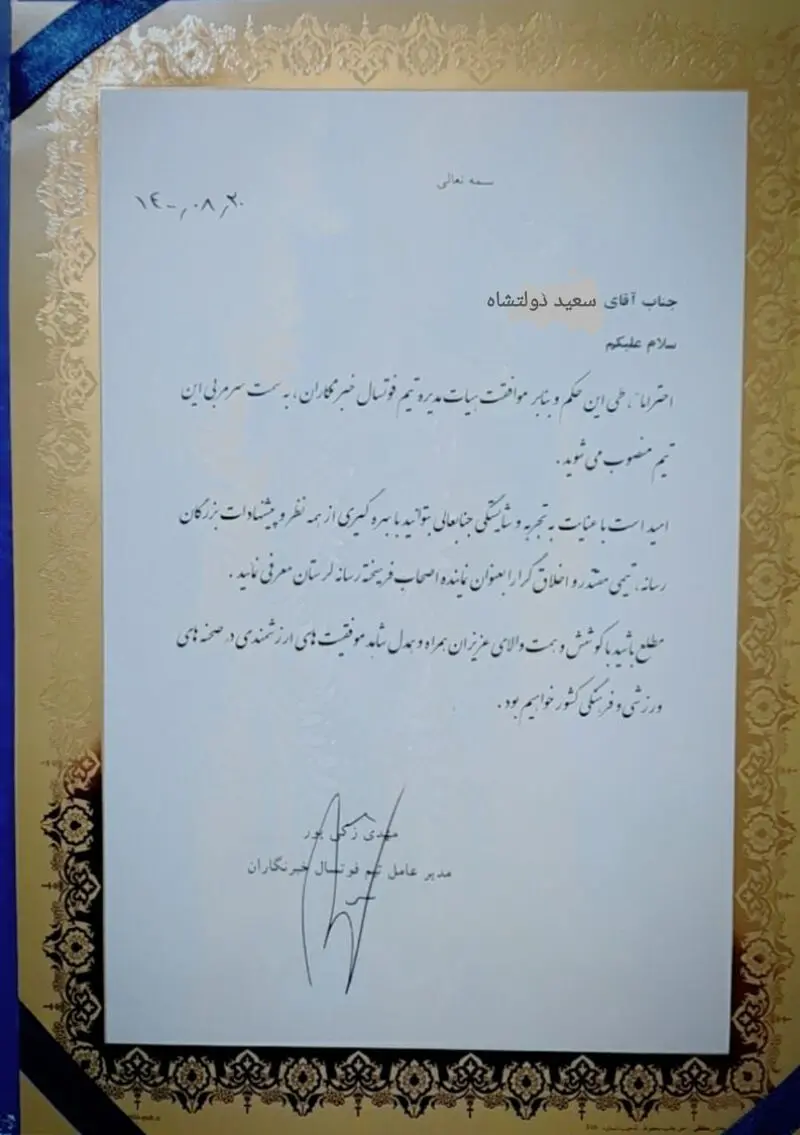 بسمه تعالی
۱۴۰۰٫۰۸٫۲۰
جناب آقای سعید دولتشاه
سلام علیکم
احتراما"، طی این حکم و بنابر موافقت هیات مدیره تیم فوتسال خبرنگاران، به سمت سرمربی این
تیم منصوب می شوید.
امید است با عنایت به تجربه و شایستگی جنابعالی بتوانید با بهره گیری از همه نظر و پیشنهادات بزرگان
رسانه، تیمی مقتدر و اخلاق گرا را بعنوان نماینده اصحاب فرهیخته رسانه لرستان معرفی نمایید.
مطلع باشید با کوشش و همت والای عزیزان همراه و همدل شاهد موفقیت های ارزشمندی در صحنه های
ورزشی و فرهنگی کشور خواهیم بود.
مهدی زکی پور
مدیر عامل تیم فوتسال خبرنگاران